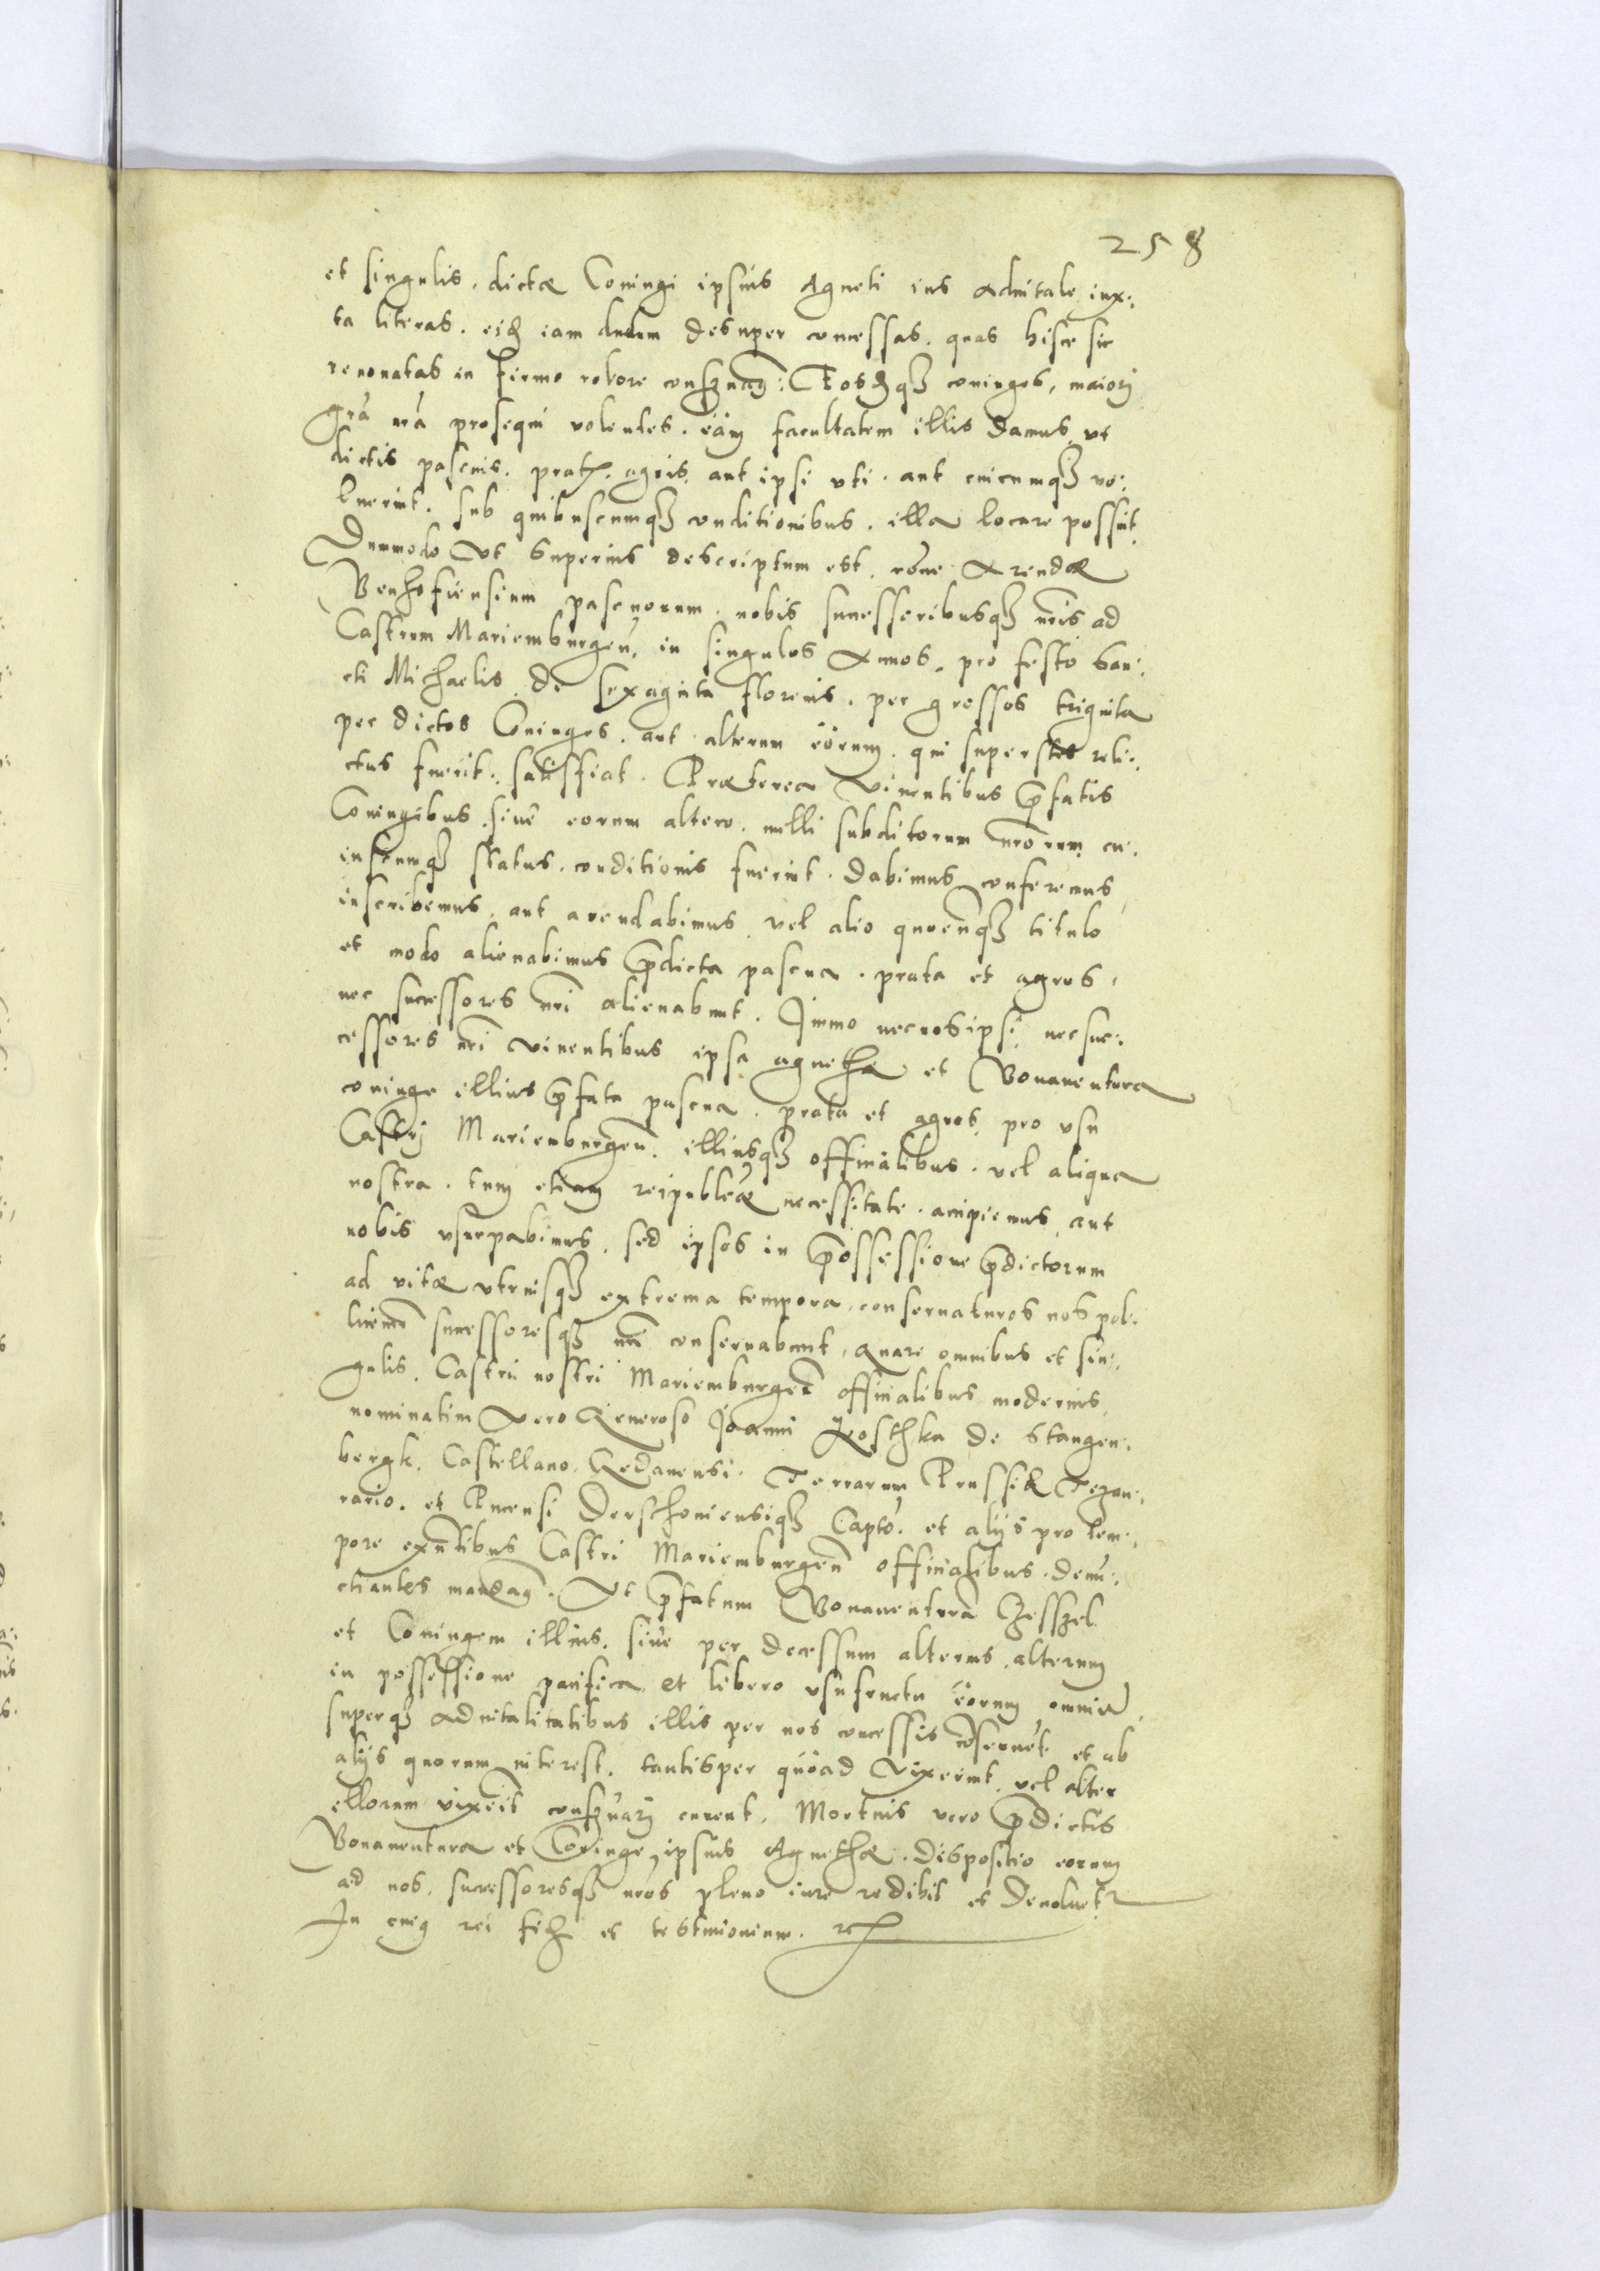 258
et singulis. dictæ Coniugi ipsius Agneti ius aduitale iux:
ta literas. eid iam dudum desuper concessas. quas hisce sic
renouatas in firmo robore conseruam: Eosdqz coniuges, maiori
gra nra prosequi uolentes. eam facultatem illis damus, ut
dictis pascuis. prat. agris. aut ipsi uti. aut cuicumqz uo:
luerint. sub quibuscumqz conditionibus. illa locare possint.
Dummodo Vt superius descriptum est. rone Arendæ
Benhofiensium pascuorum. nobis successoribusqz nris ad
Castrum Mariemburgen. in singulos Annos. pro festo San:
cti Michaelis. de sexaginta florenis. per grossos triginta
per dictos Coniuges. aut alterum eorum. qui superstes reli:
ctus fuerit. satisfiat. Præterea Viuentibus pfatis
Coniugibus. siue eorum altero. nulli subditorum nrorum cu:
iuscumqz status. conditionis fuerint. dabimus conferemus
inscribemus. aut arendabimus. uel alio quocunqz titulo
et modo alienabimus pdicta pascua. prata et agros,
nec successores nri alienabunt. Immo nec nos ipsi nec suc:
cessores nri viuentibus ipsa agnetha et Bonauentura
coniuge illius pfata pascua. prata et agros. pro usu
Castri Mariemburgen. illiusqz officialibus. uel aliqua
nostra. tum etiam reipublcæ necessitate. accipiemus aut
nobis usurpabimus. sed ipsos in possessione pdictorum
ad uitæ utriusqz extrema tempora. conseruaturos nos pol:
licemr successoresqz nri conseruabunt. Quare omnibus et sin:
gulis. Castri nostri Mariemburgen officialibus modernis.
nominatim Vero Generoso Joanni Kosthka de Stangen:
bergk. Castellano Gedanensi. Terrarum Prussiæ Tezau:
rario. et Pucensi Derschouiensiqz Capto. et alijs pro tem:
pore exntibus Castri Mariemburgen officialibus. denu:
ctiantes mandam. Vt pfatum Bonauentura
et Coniugem illius. siue per decessum alterius. alterum
in possessione pacifica et libero usufructu eorum omniu
superqz aduitalitatibus illis per nos concessis coseruet. et ab
alijs quorum interest. tantisper quoad Vixerint. uel alter
ellorum uixerit conseruari curent. Mortuis uero pdictis
Bonauentura et Coniuge ipsius Agnethæ. dispositio eorum
ad nos. successoresqz nros pleno iure redibit et deuoluetr
In cuiq rei fidz et testimonium. etc